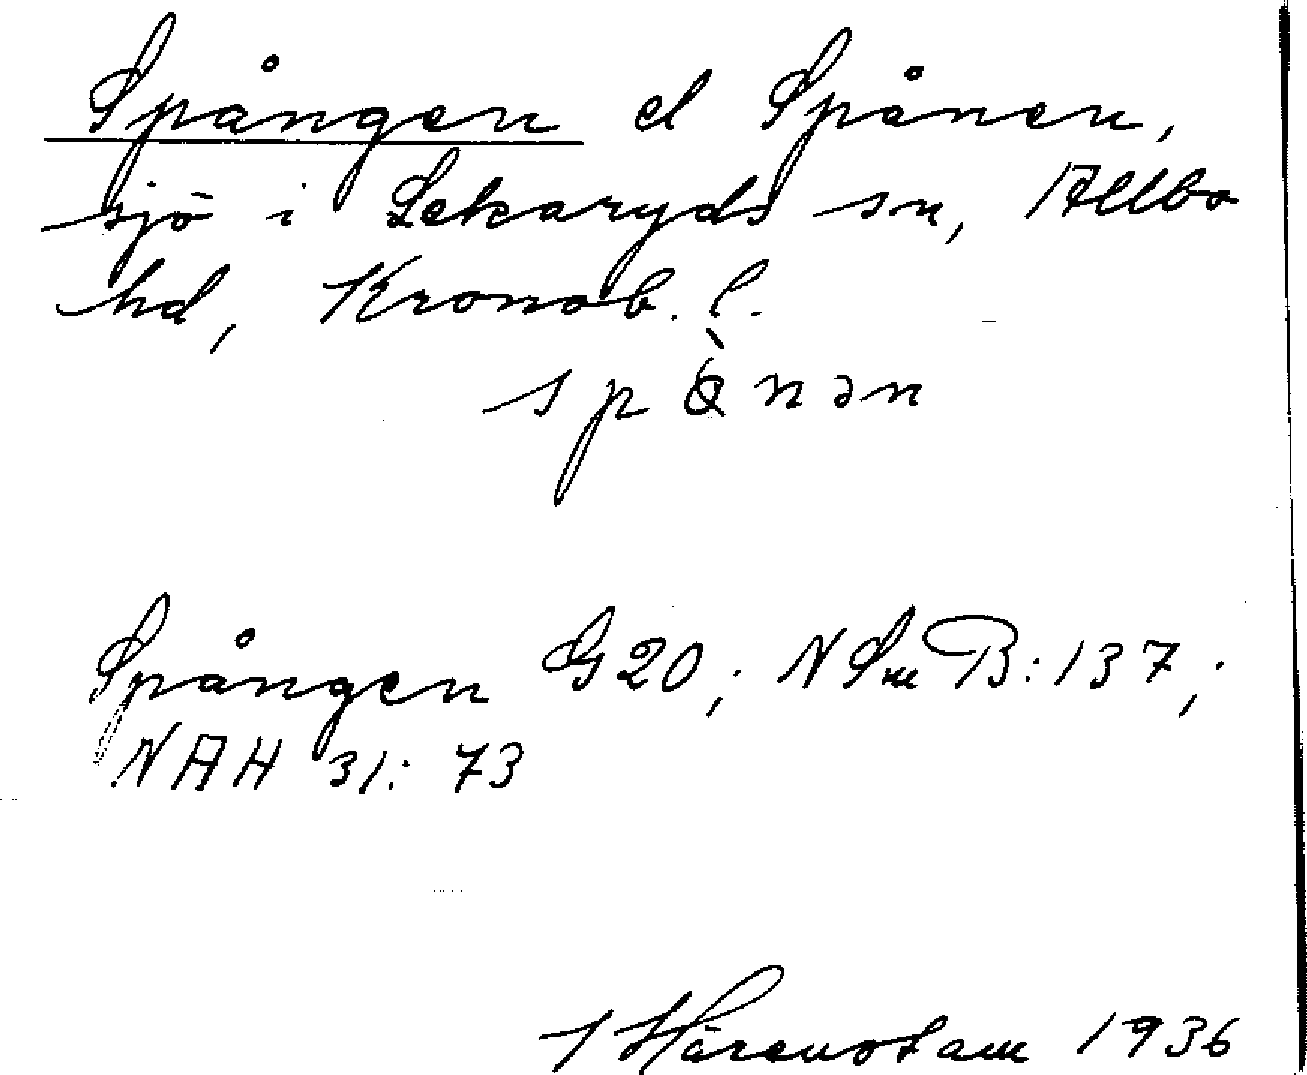 Spången el Spånen,
sjö i Lekaryds sn, Allbo
hd, Kronob. l.
spɑ̀nən
Spången G20; NSmB: 137;
NAH 31: 73
1936